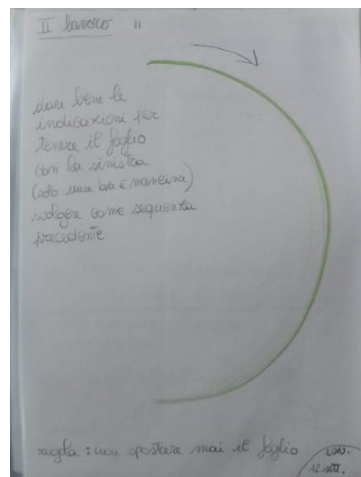 II lavoro II
dare bene le
indicazioni per
tenere il foglio
con la sinistra
(solo una b.a è mancina)
svolgere come sequenza
precedente
regola: non spostare mai il foglio
12 ott.